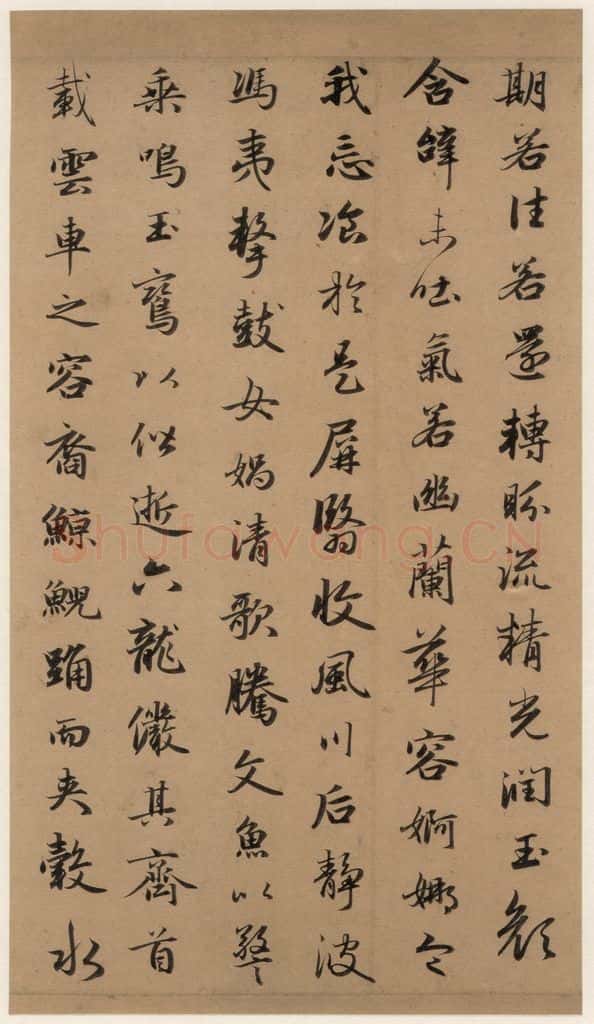 期若往若還轉眄流精光潤玉顏
含辭未吐氣若幽蘭華容婀娜令
我忘飡於是屏翳收風川后靜波
馮夷擊鼓女媧清歌騰文魚以警
乘鳴玉鸞以偕逝六龍儼其齊首
載雲車之容裔鯨鯢踊而夾轂水
Shufawang.CN